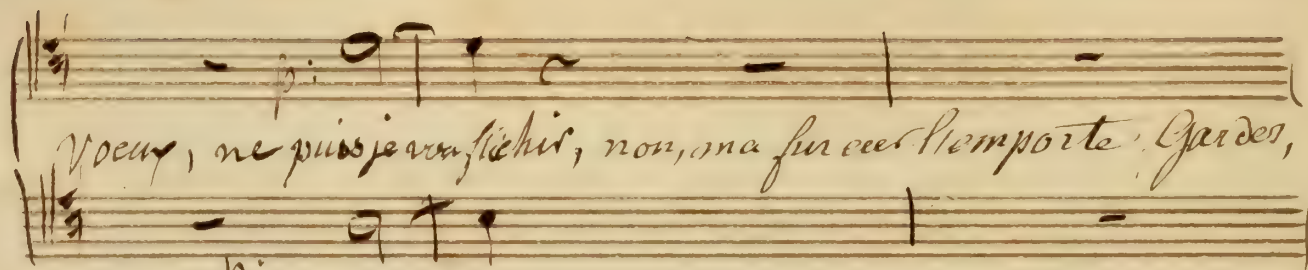 p:
voeux, ne puis je vous fléchir, non, ma fureur l'emporte. Gardes,
p: